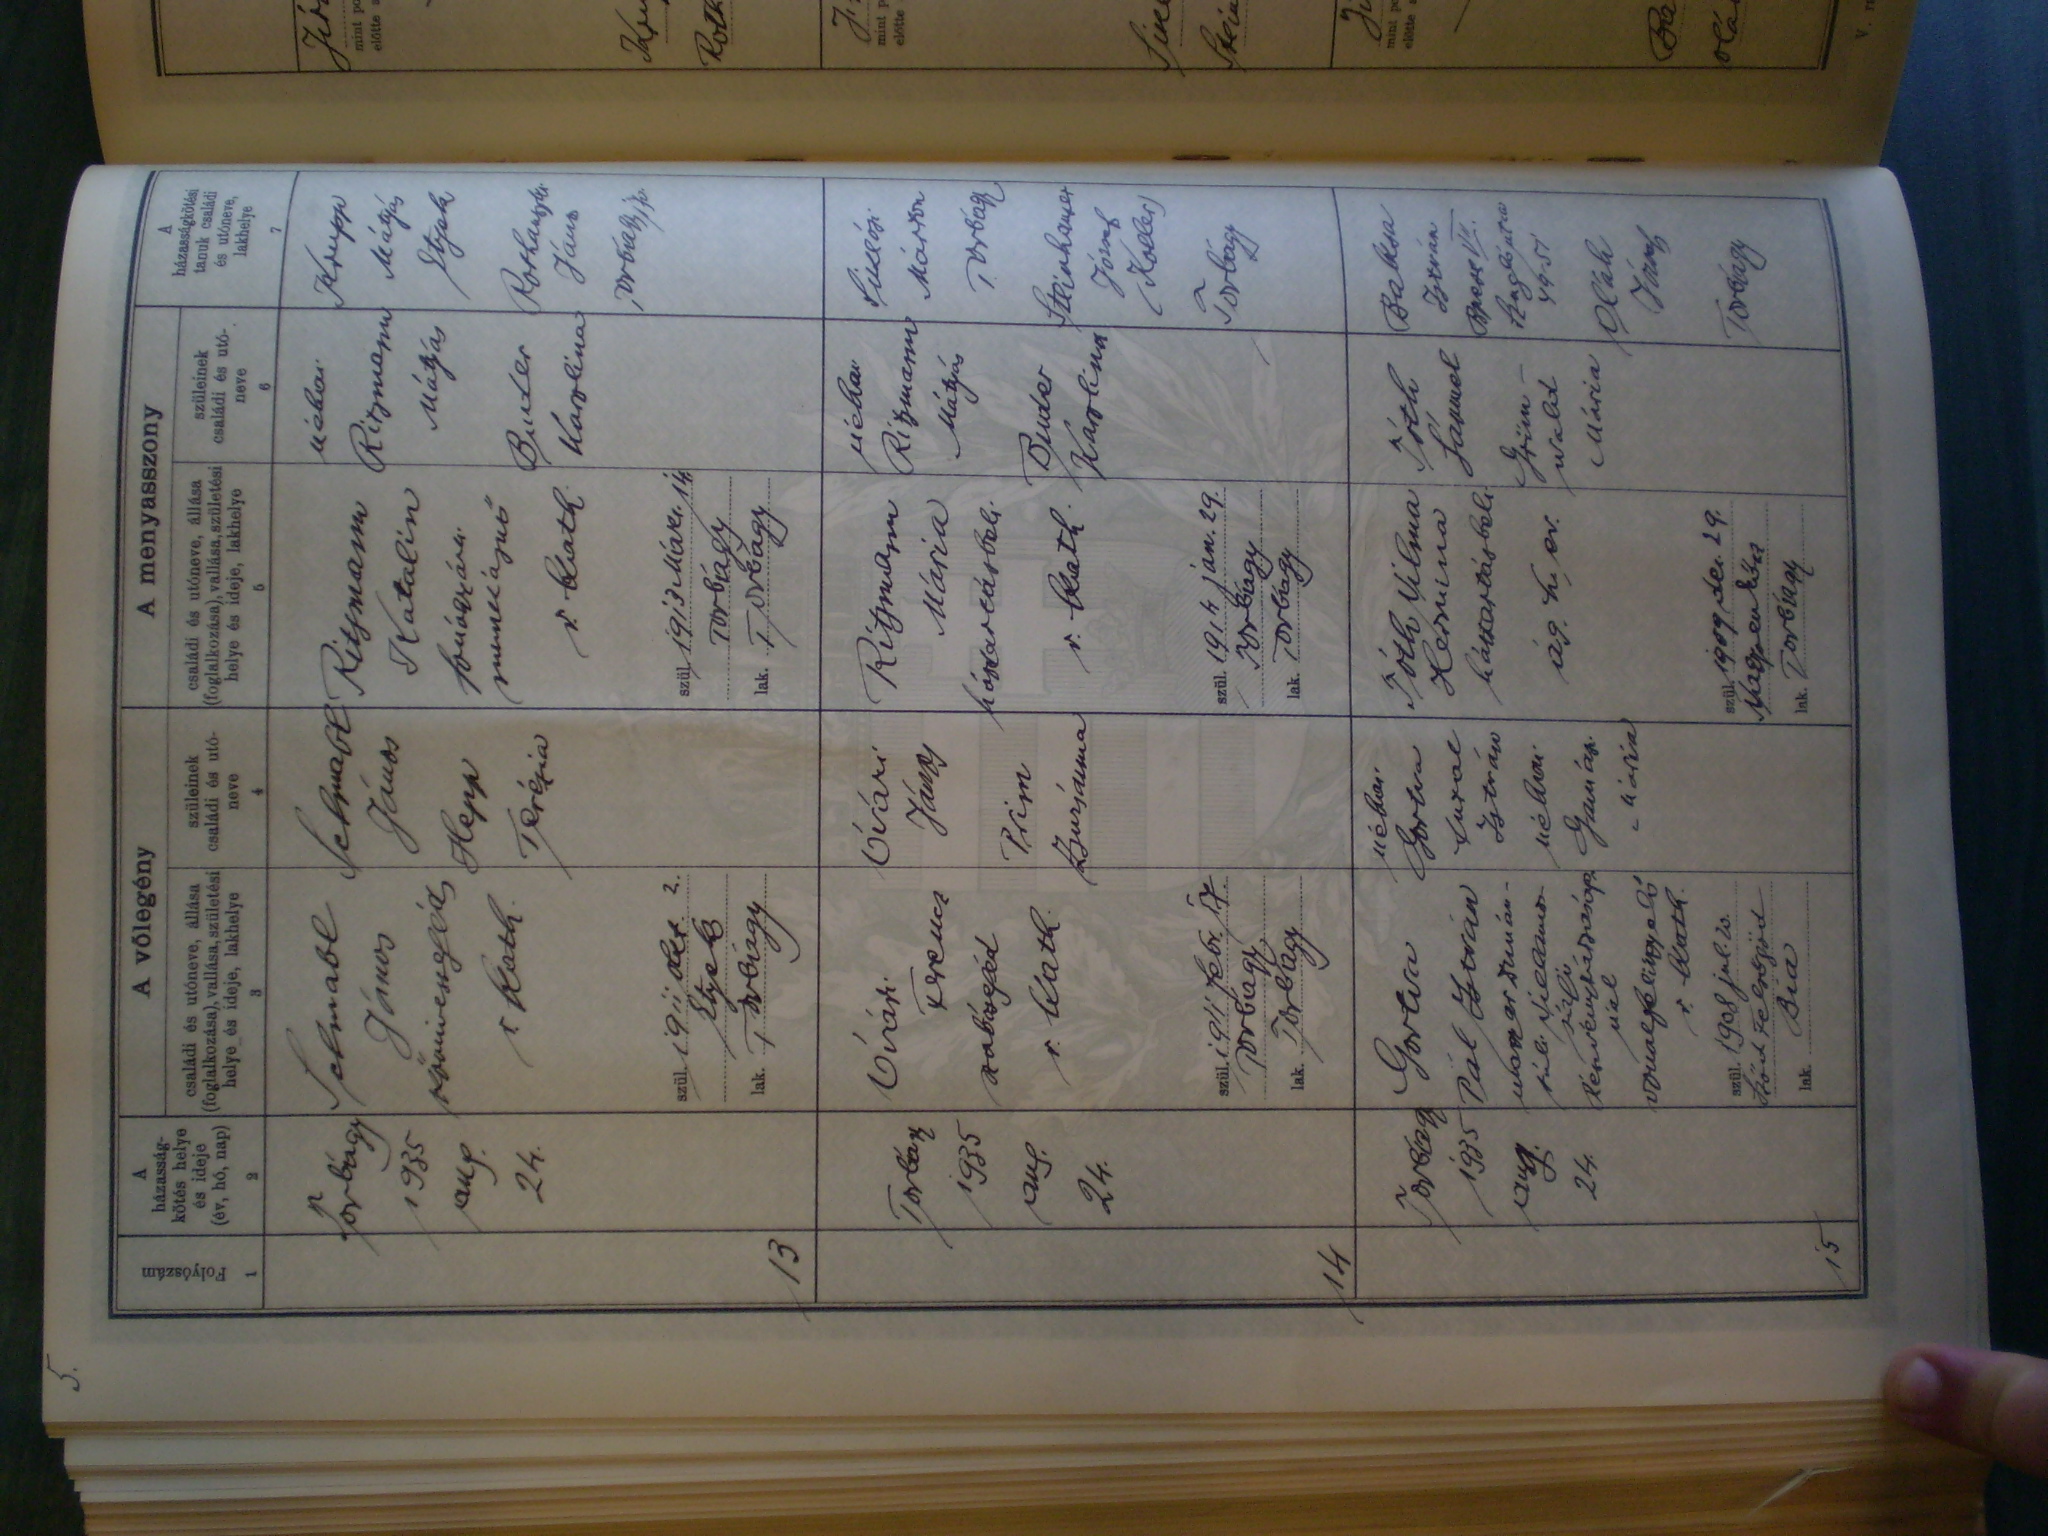 5.
Folyószám
1
A
házasság-
kötés helye
és ideje
(év, hó, nap)
2
A vőlegény
családi és utóneve, állása
(foglalkozása), vallása, születési
helye és ideje, lakhelye
3
szüleinek
családi és utó-
neve
4
A menyasszony
családi és utóneve, állása
(foglalkozása), vallása, születési
helye és ideje, lakhelye
5
szüleinek
családi és utó-
neve
6
A
házasságkötési
tanuk családi
és utóneve,
lakhelye
7
13
Torbágy
1935
aug.
24.
Schnabl
János
kőművessegéd
r. kath.
szül. 1911 okt. 2.
Etyek
lak. Torbágy
Schnabl
János
Hepp
Terézia
Ritzmann
Katalin
fonógyári
munkásnő
r. kath.
szül. 1913 márc. 14
Torbágy
lak. Torbágy
néhai
Ritzmann
Mátyás
Buder
Karolina
Krupp
Mátyás
Etyek
János
Torbágy
14
Torbágy
1935
aug.
24.
Óvári
Ferenc
szabósegéd
r. kath.
szül. 1911 febr. 17.
Torbágy
lak. Torbágy
Óvári
János
Prim
Zsuzsánna
Ritzmann
Mária
háztartásbeli
r. kath.
szül. 1914 jan. 29.
Torbágy
lak. Torbágy
néhai
Ritzmann
Mátyás
Buder
Karolina
Márton
Torbágy
Steinhauser
József
(Koller)
Torbágy
15
Torbágy
1935
aug.
24.
Gortva
Pál István
r. kath.
szül. 1908 jul. 20.
lak. Bia
néhai
Gortva
István
néhai
Mária
Tóth Vilma
Hermina
háztartásbeli
ág. h. ev.
szül. 1909 dec. 29.
lak. Torbágy
Tóth
Sámuel
Grün-
wald
Mária
Baksa
István
49-51
Oláh
József
Torbágy
mint po
előtte a
Roth
mint p
előtte
mint po
előtte s
Ba
Olá
V. re